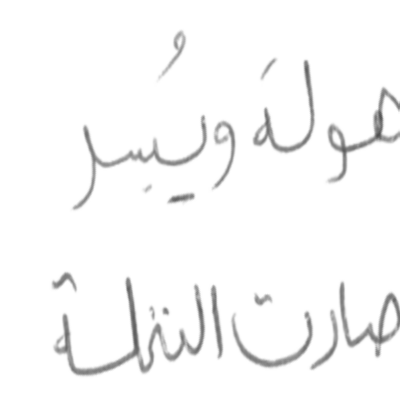 هولهَ ويُسر
صارت النملة